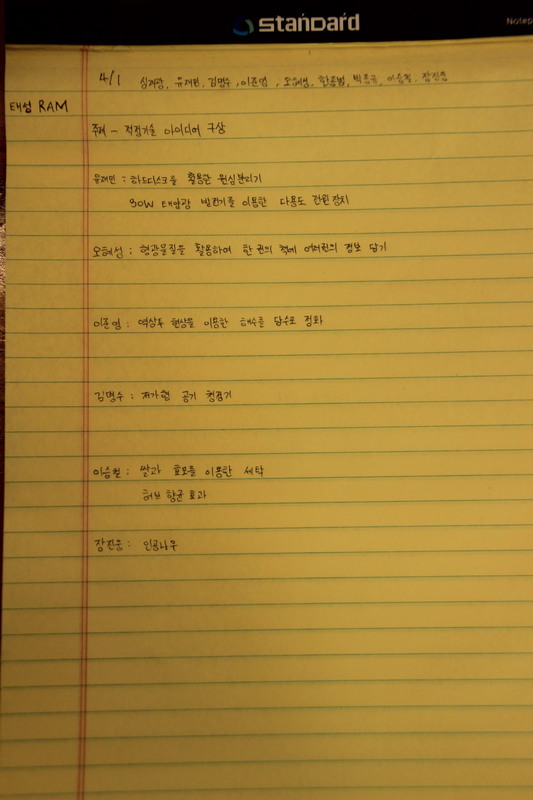 standard
Notep
4/1 심재광, 유재민, 김명수, 이준영, 오혜성, 한종범, 이승철, 장진웅
태성 RAM
주제 - 적정기술 아이디어 구상
유재민 : 하드디스크를 활용한 원심분리기
30W 태양광 발전기를 이용한 다용도 전원장치
오혜성 : 형광물질을 활용하여 한 권의 책에 여러권의 정보 담기
이준영 : 역삼투 현상을 이용한 해수를 담수로 정화
김명수 : 저가형 공기 청정기
이승철 : 쌀과 효모를 이용한 세탁
허브 항균 효과
장진웅 : 인공나무